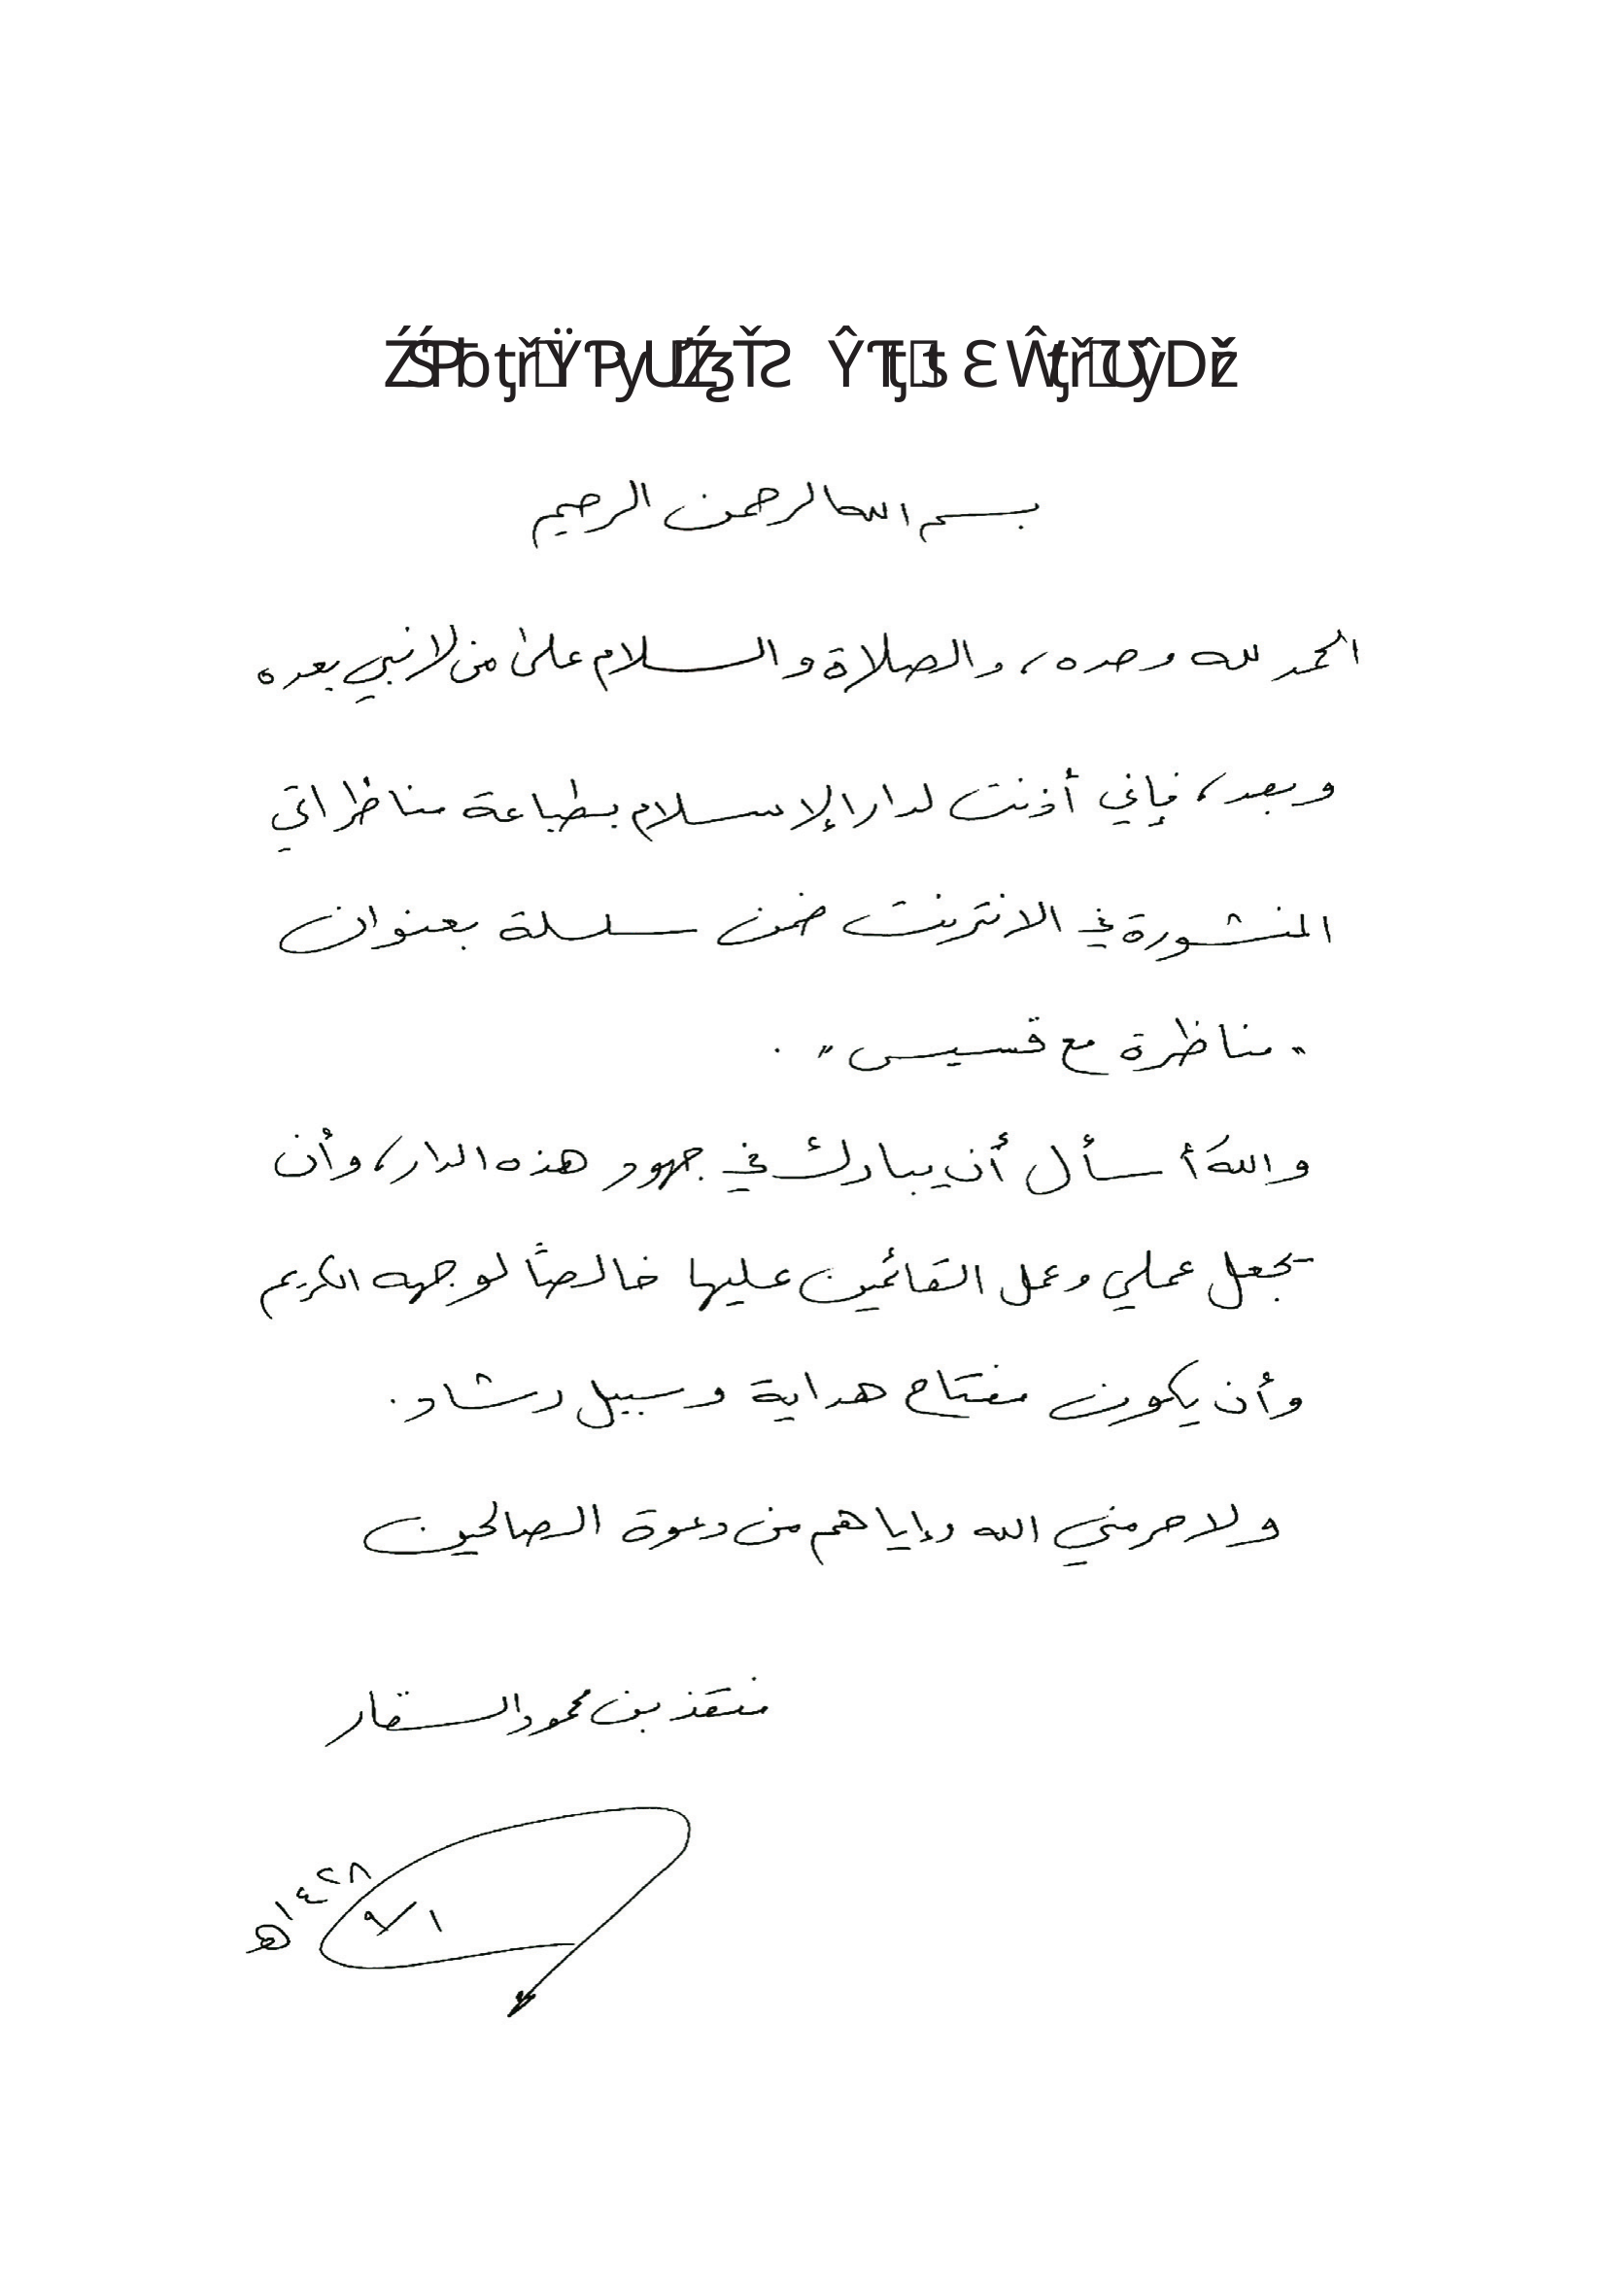 بسم الله الرحمن الرحيم
الحمد لله وحده، والصلاة والسلام على من لا نبي بعده
وبعد، فإني أذنت لدار الإسلام بطباعة مناظراتي
المنشورة في الانترنت ضمن سلسلة بعنوان
"مناظرة مع قسيس".
واللهَ أسأل أن يبارك في جهود هذه الدار، وأن
يجعل عملي وعمل القائمين عليها خالصاً لوجهه الكريم
وأن يكون مفتاح هداية وسبيل رشاد.
ولا حرمني الله وإياهم من دعوة الصالحين
منقذ بن محمود السقار
١/٩
١٤٢٨هـ